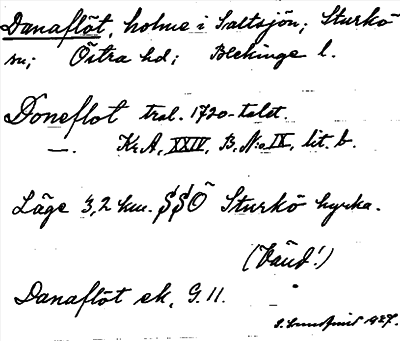 Danaflöt, holme i Saltsjön; Sturkö
sn; Östra hd; Blekinge l.
Doneflot trol. 1720-talet.
—. Kr.A, XXIV, B, N:o IX, lit. b.
Läge 3,2 km. SSÖ Sturkö kyrka.
(Vänd!)
Danaflöt ek, G. 11.
1927.